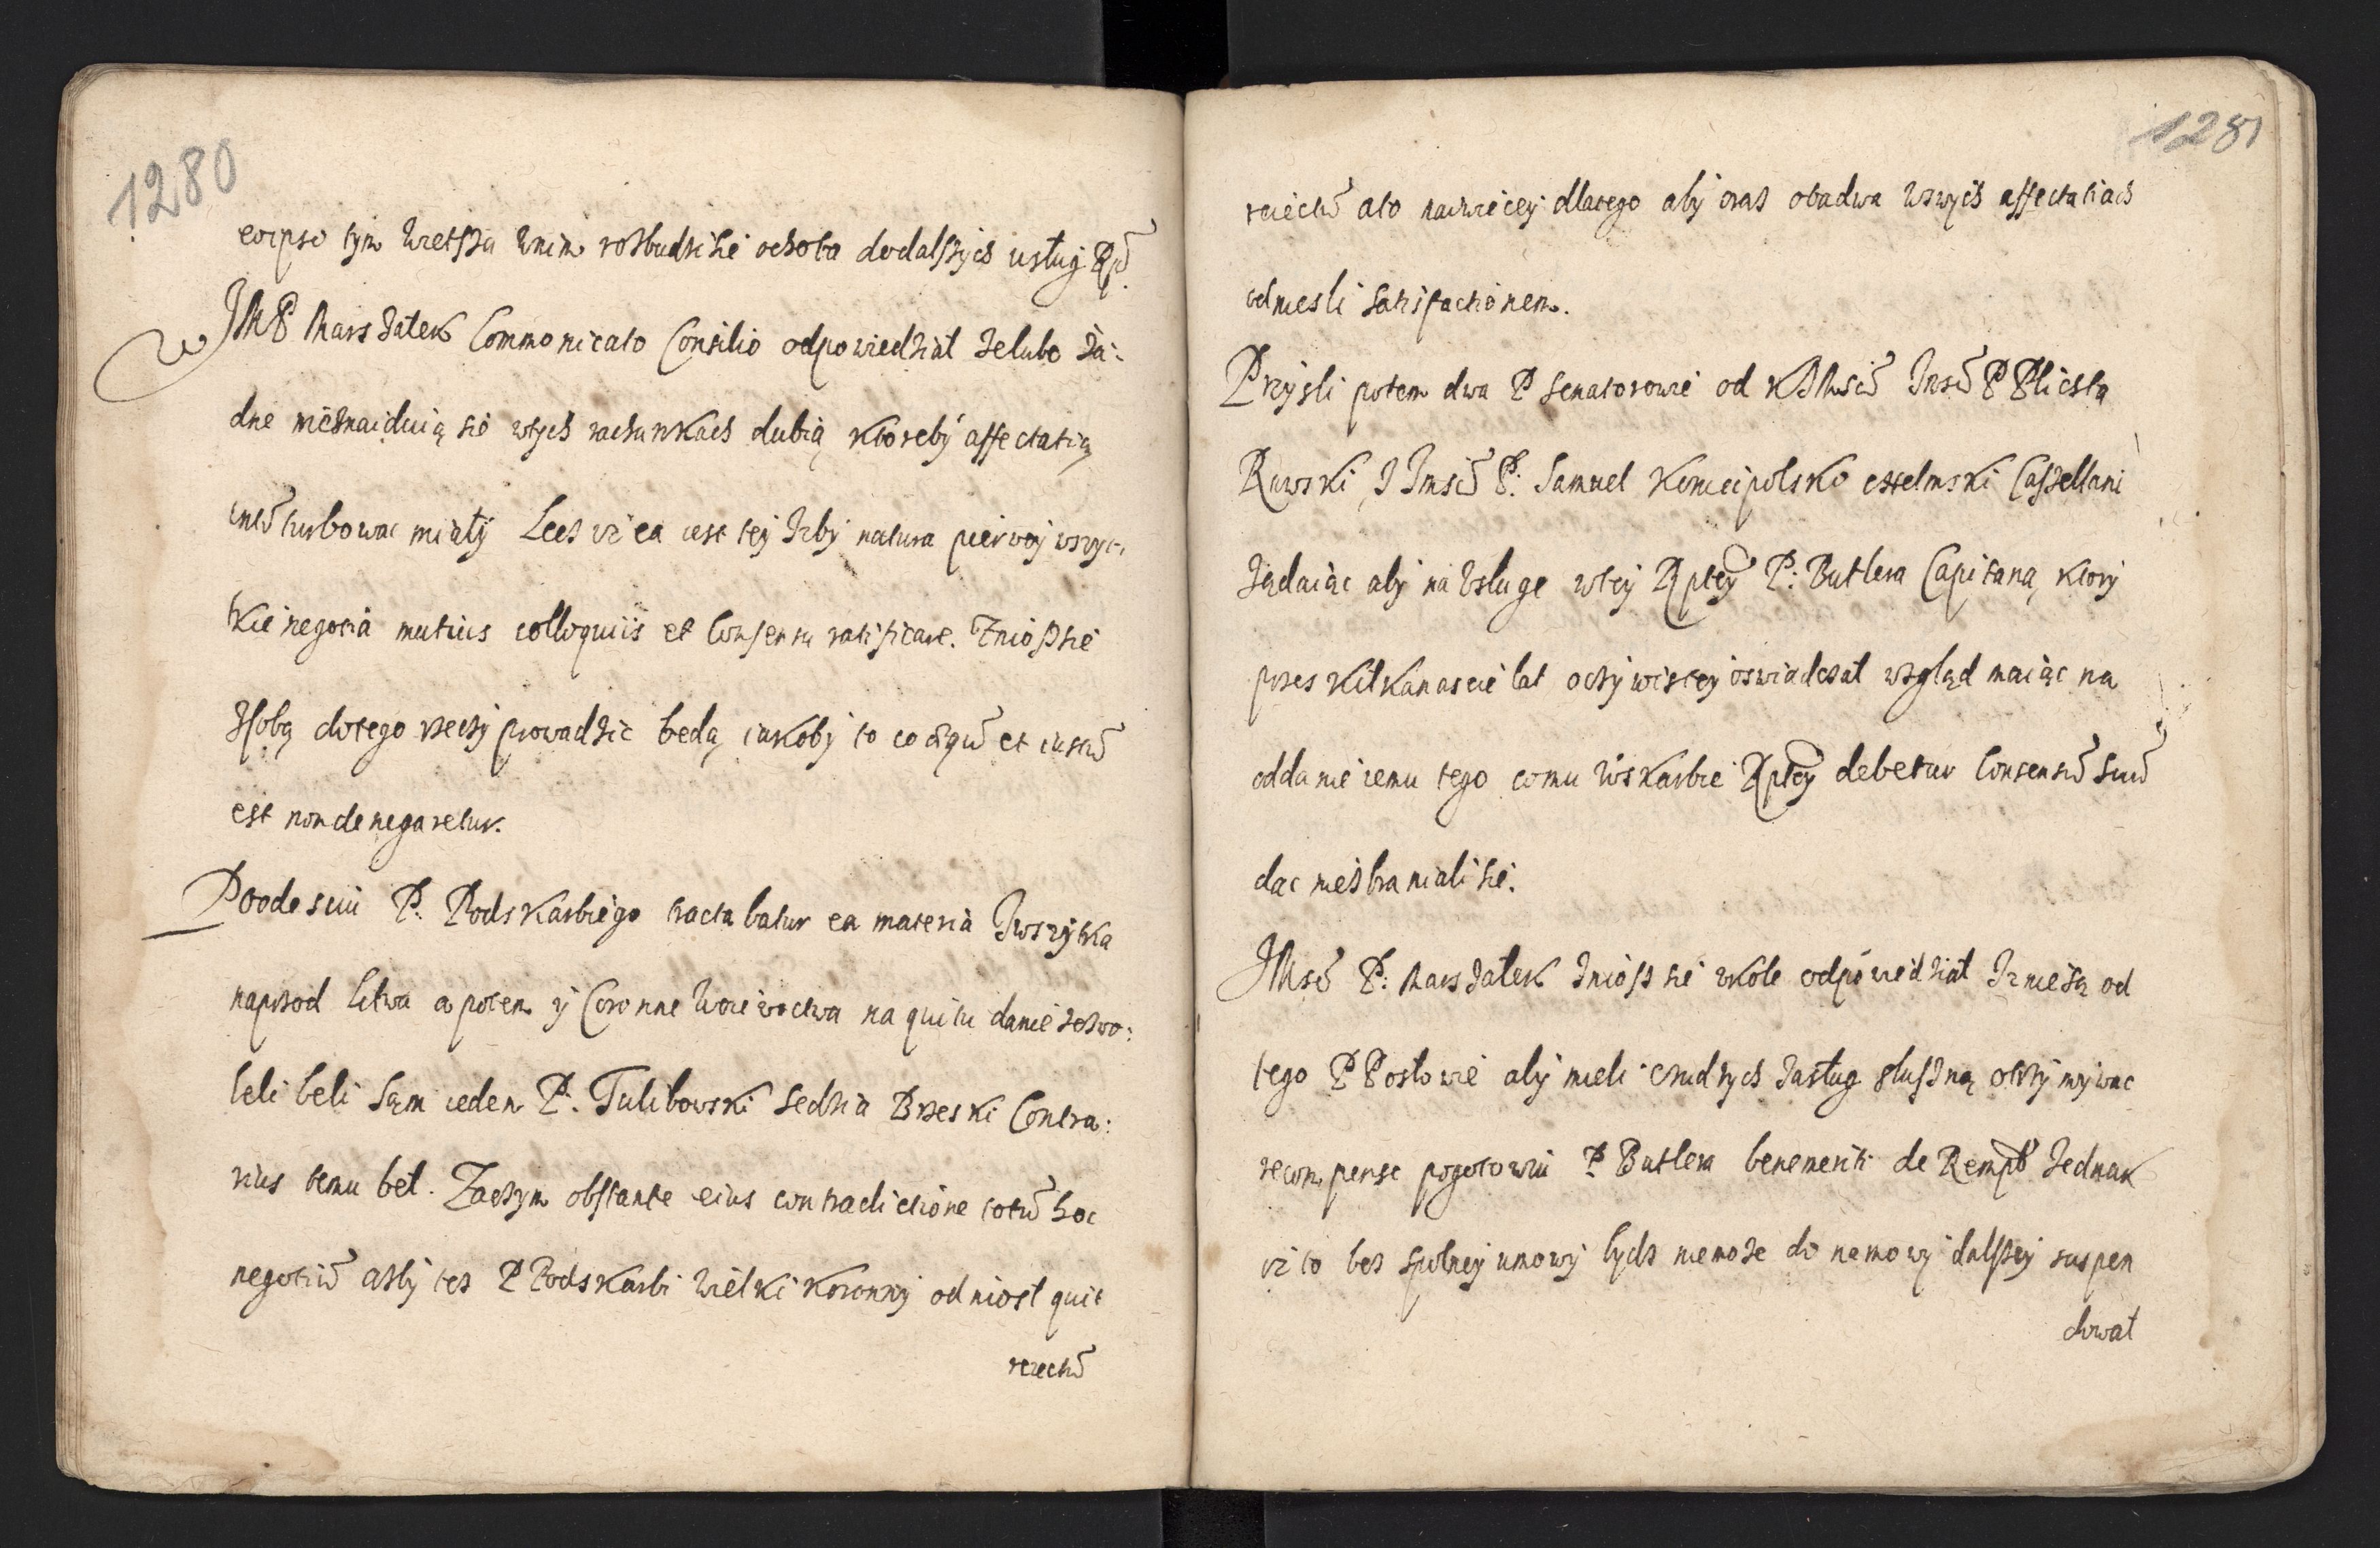 1280
eoipso tym wietsza wnim rozbudzi sie ochota dodalszych usług Rp.
JMP Marszałek Communicato Consilio odpowiedział że lubo ża:
dne nieznaiduią sie wtych rachunkach dubią ktoreby affectatią
turbowac miały Lecz iż ea iest tey Izby natura pierwey wszyt
kie negotia mutuis colloquiis et Consensu ratificare. Zniosszie
zsobą dotego rzeczy prowadzic będą, iakoby to co æquũ et iustũ
est non denegaretur.
Poodesciu P: Podskarbiego tractabatur ea materia Iwszytka
naprzod Litwa a potem y Coronne Woiewoctwa na quitu danie zezwo:
leli beli Sąm ieden P: Tulibowski Sedzia Brzeski Contra:
rius temu bel. Zaczym obstante eius contradictione totũ hoc
negotiũ azby tez P Podskarbi Wielki Koronny odniosł quit
rzectũ
1281
rzectũ ato nawiecey dlatego aby oraz obadwa wswych affectatiach
odniesli satisfactionem.
Przysli potem dwa P Senatorowie od KJMsci Jmsc P Plichta
Rawski, I Jmsc P: Samuel Koniecpolski chelmski Casztellani
Ządaiąc aby na Usługe wtey Rptey P: Butlera Capitaną ktory
przez kilkanascie lat oczywistey oswiadczał wzgląd maiąc na
oddanie iemu tego comu wskarbie Rptey debetur Consensũ Suũ
dac niezbraniali sie.
JMsc P: Marszałek zniosszie wkole odpowiedział Iz nie są od
tego P Posłowie aby mieli cnudzych zasług słuszną otrzymywac
recompense pogotowiu P Butlera benemeriti de Rempb Jednak
iż to bez społney umowy bydz niemoze do namowy dalszey suspen
dował